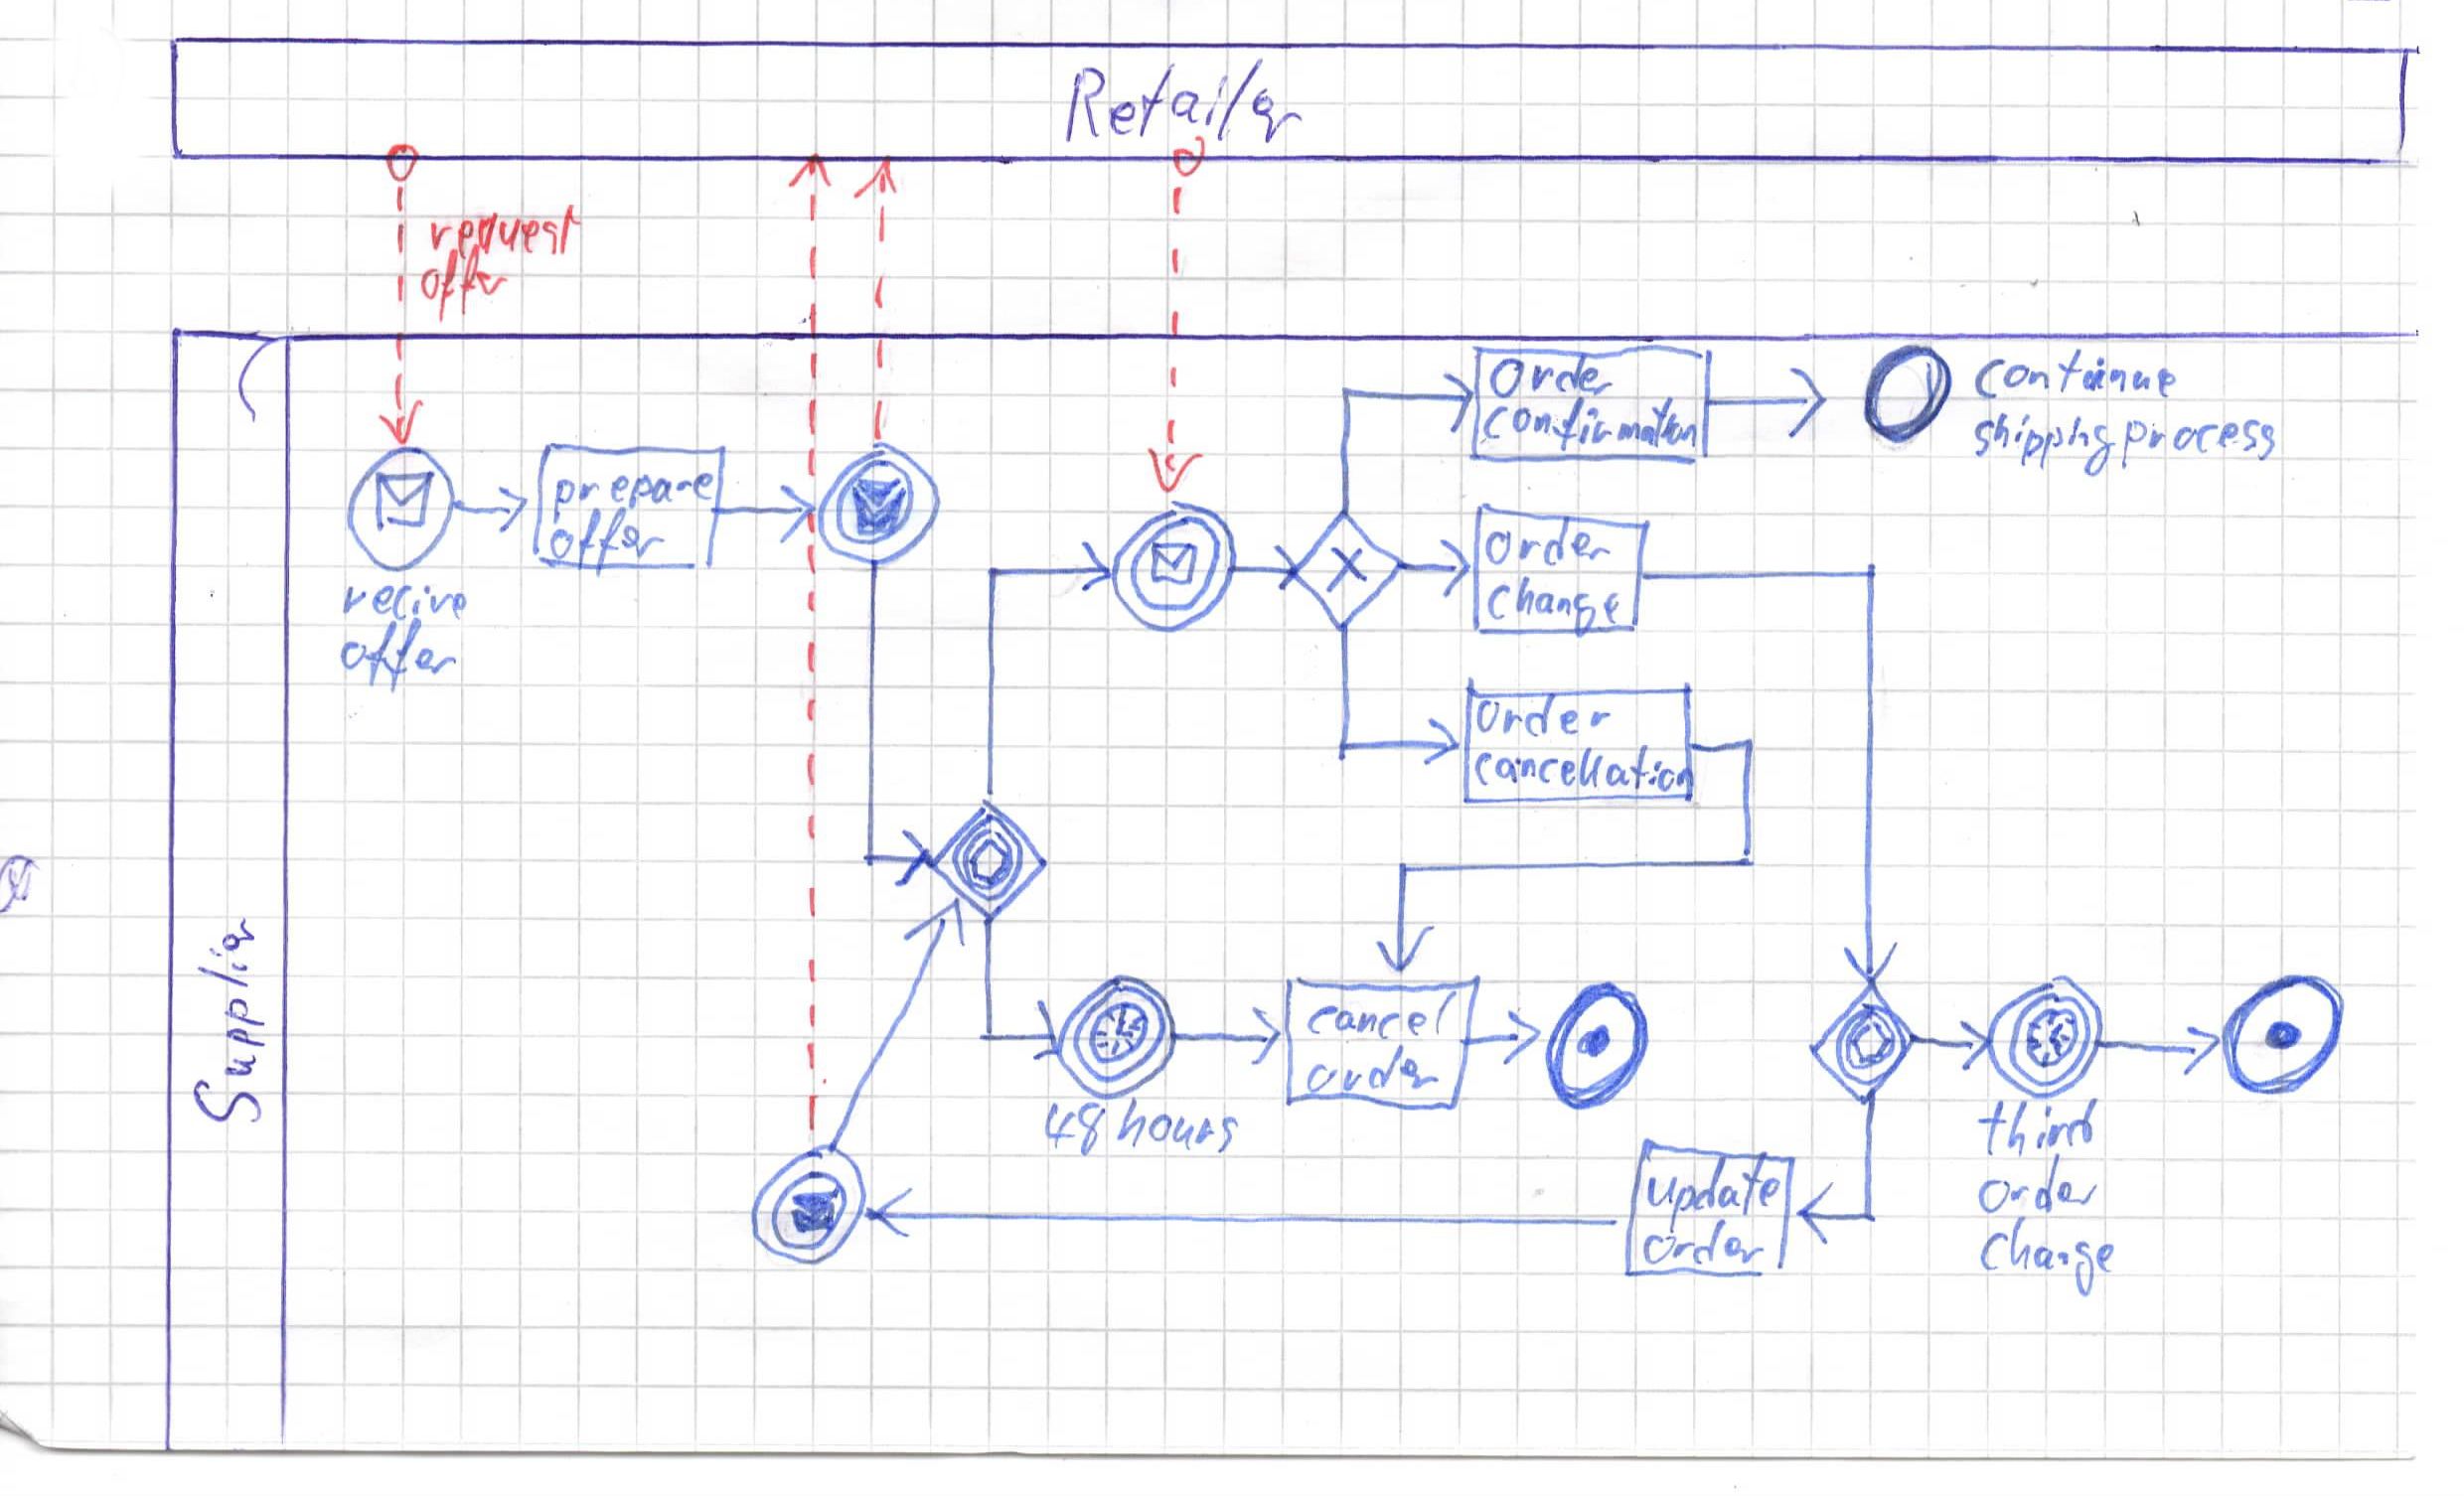 Retailer
request
offer
Supplier
recive
offer
prepare
offer
Order
confirmation
continue
shipping process
Order
change
Order
cancellation
48 hours
cancel
order
third
order
change
update
order